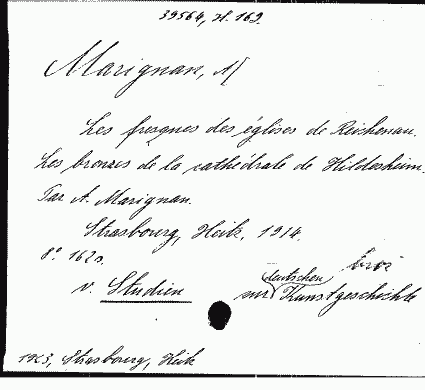 39564, H. 169.
Marignan, A[
Les fresques des églises de Reichenau.
Les bronzes de la cathédrale de Hildesheim.
Par A. Marignan.
Strasbourg, Heitz, 1914.
8°. 162 s.
v. Studien zur deutschen Kunstgeschichte
1963, Strasbourg, Heitz